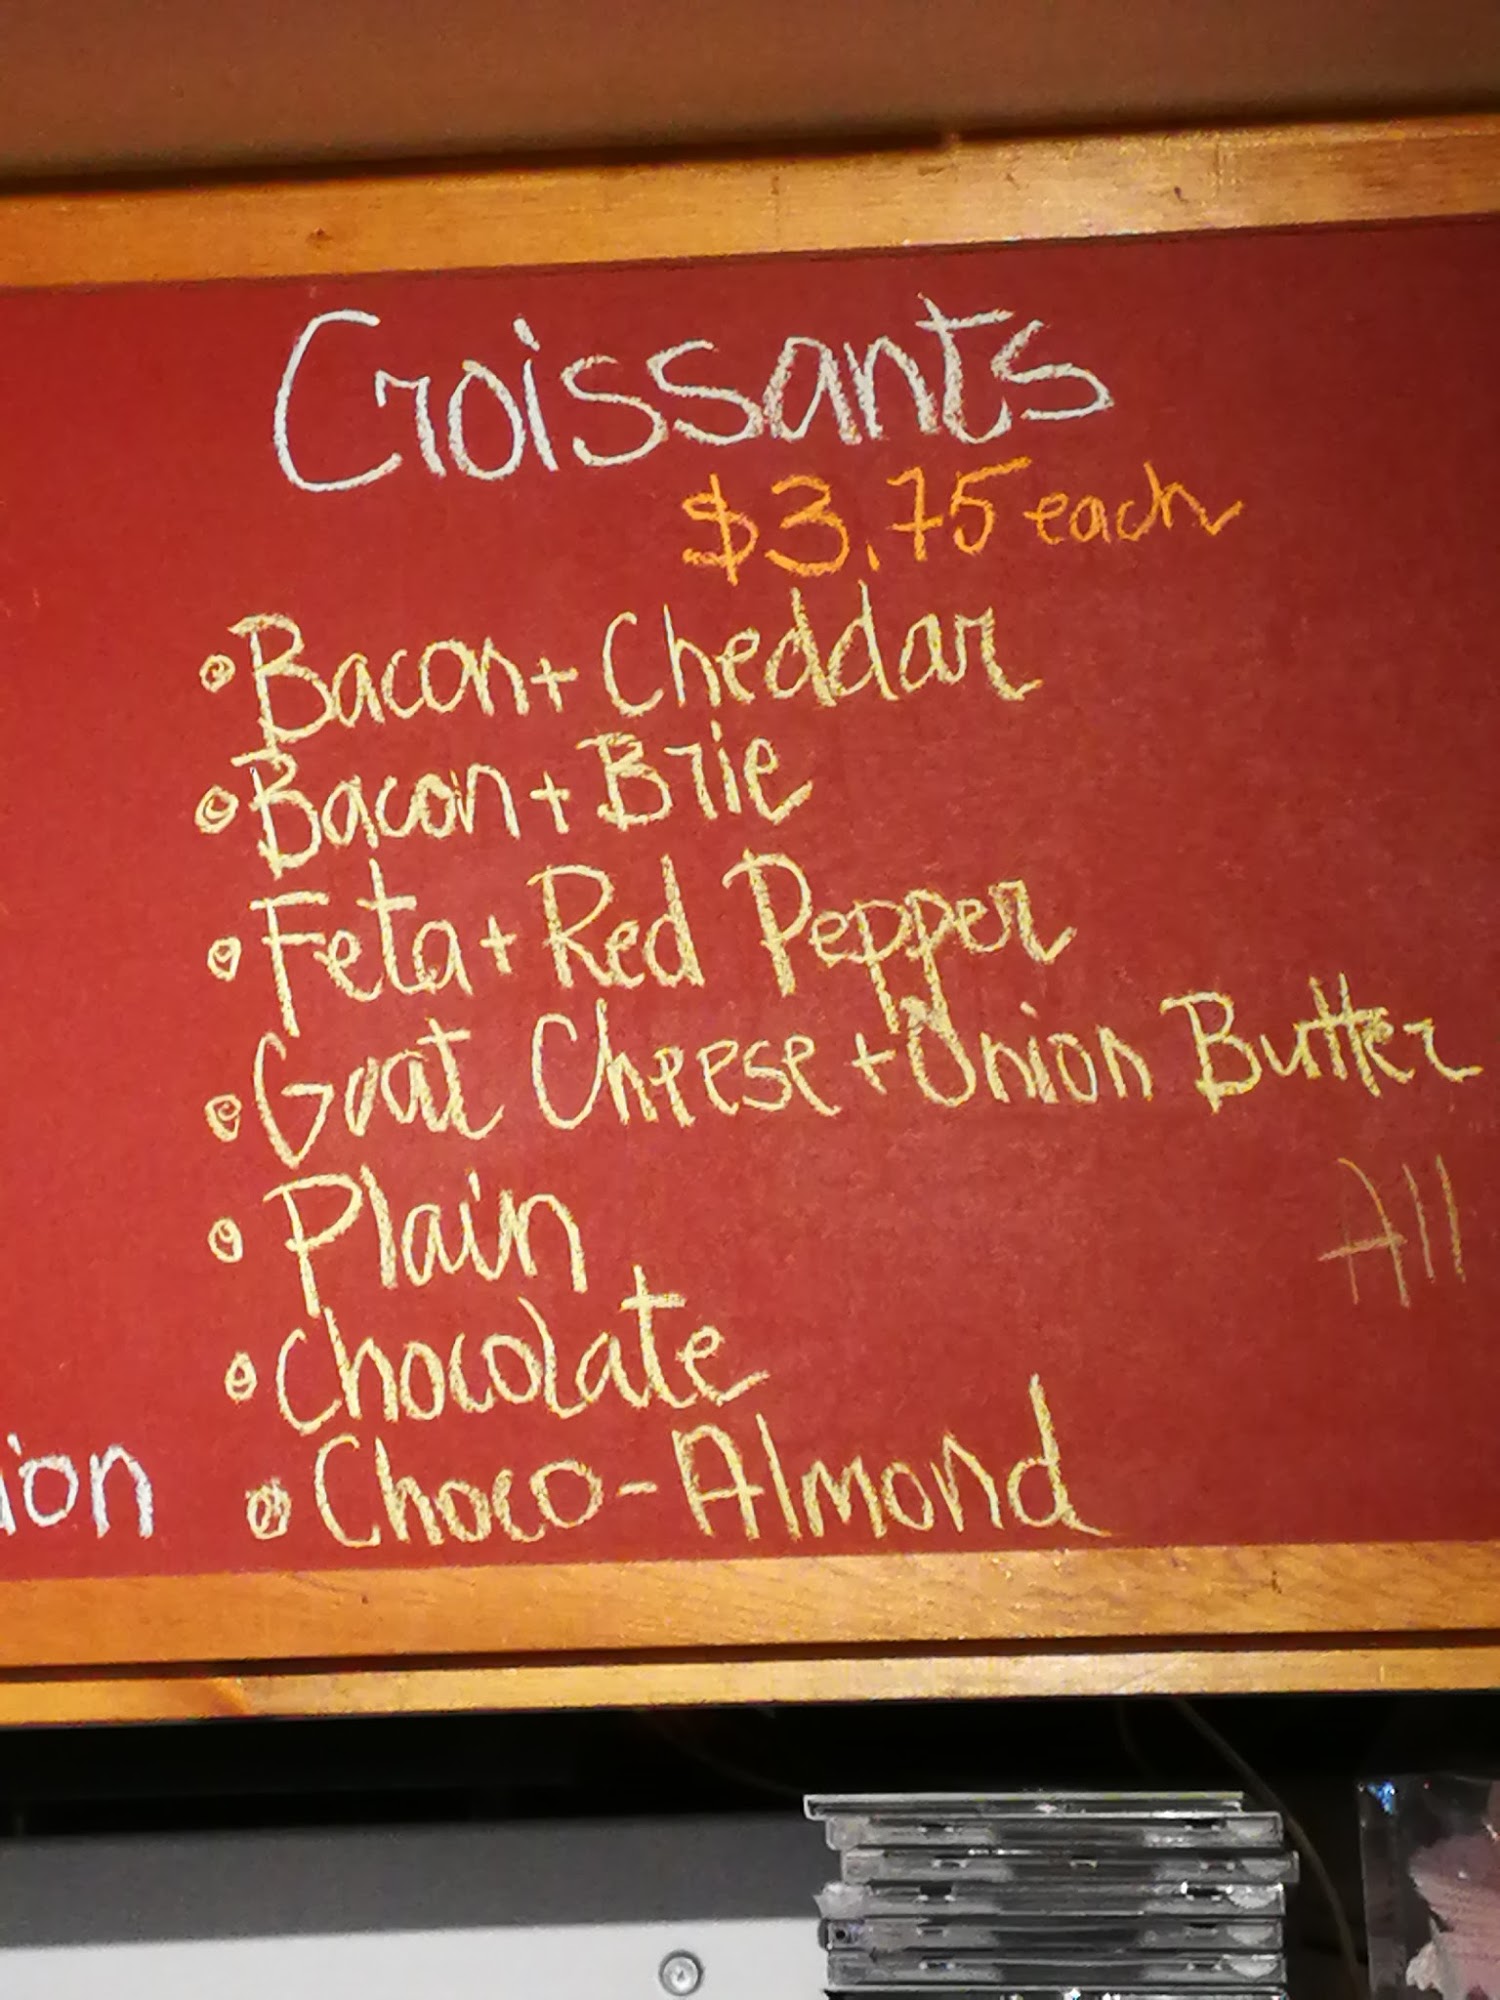 Croissants
$3.75 each
Bacon + Cheddar
Bacon + Brie
Feta + Red Pepper
Goat Cheese + Onion Butter
Plain
All
Chocolate
ion
Choco-Almond